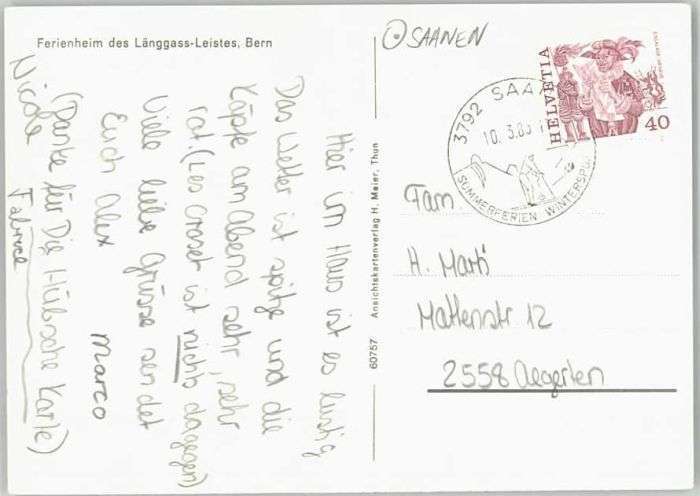 Ferienheim des Länggass-Leistes, Bern
SAANEN
HELVETIA
40
3792 SAA
10. 3.8
SOMMERFERIEN WINTERSPO
Hier im Haus ist es lustig
Das Wetter ist spitze und die
Köpfe am Abend sehr, sehr
rot. (Les Croset ist nichts dagegen)
Viele liebe Grüsse sendet
Euch Alex Marco
(Danke für Die Hübsche Karte)
Nicole Fabrice
60757 Ansichtskartenverlag H. Meier, Thun
Fam.
H. Marti
Mattenstr 12
2558 Aegerten